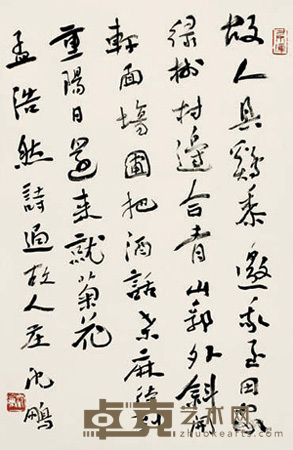 故人具鷄黍邀我至田家
绿樹村邊合青山郭外斜開
軒面場圃把酒話桑麻待到
重陽日還来就菊花
孟浩然詩過故人庄 沈鵬
卓克艺术网
zhuokearts.com